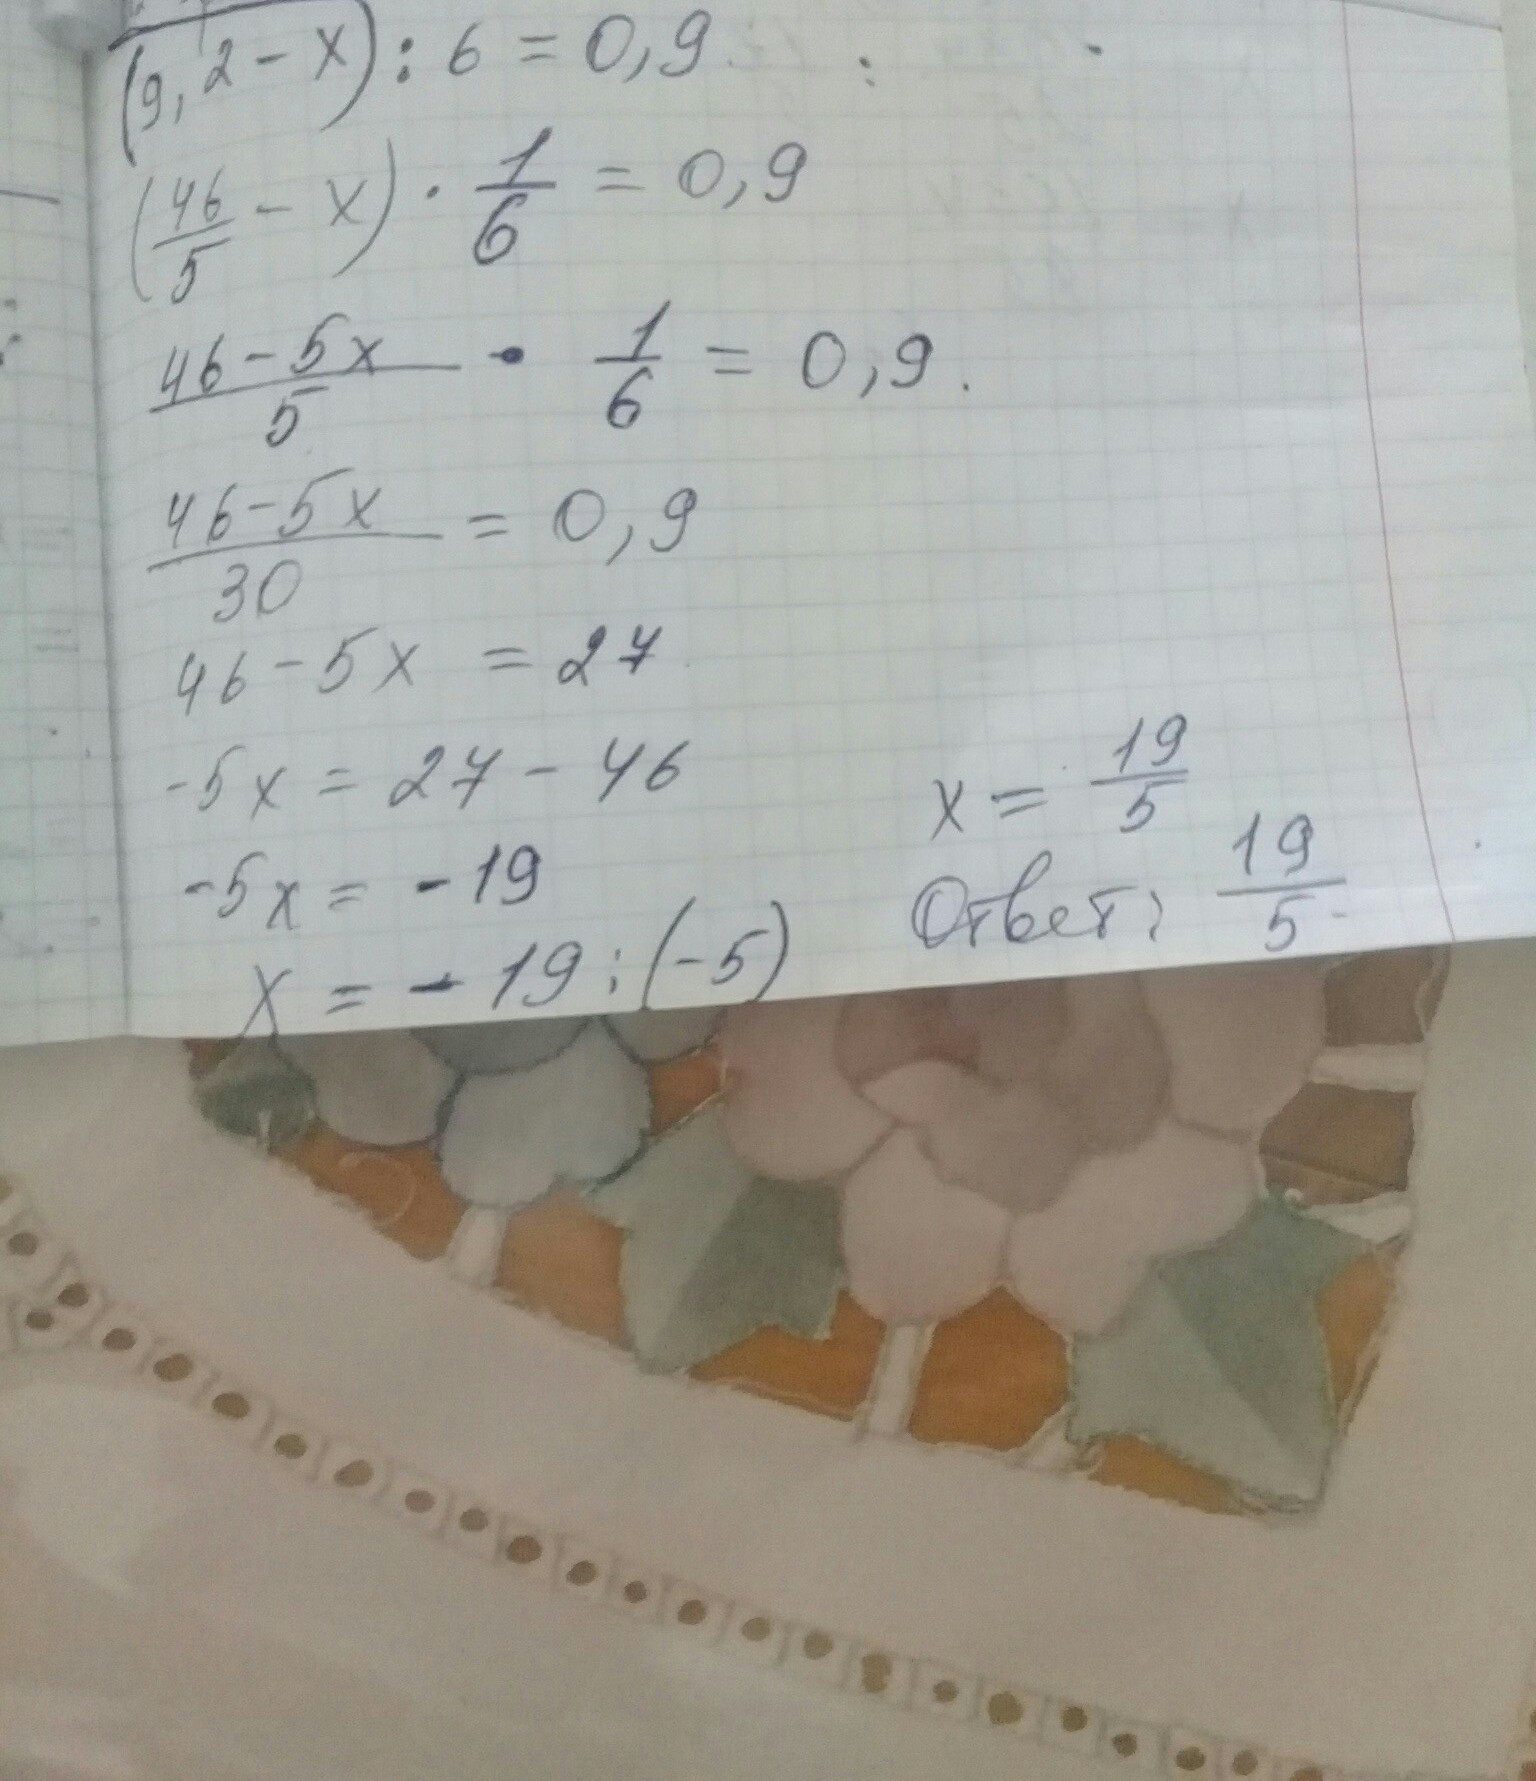 (9,2-x):6=0,9
(46/5-x)·1/6=0,9
46-5x/5 · 1/6=0,9.
46-5x/30=0,9
46-5x=27
-5x=27-46
-5x=-19
x=-19:(-5)
x=19/5
Ответ: 19/5